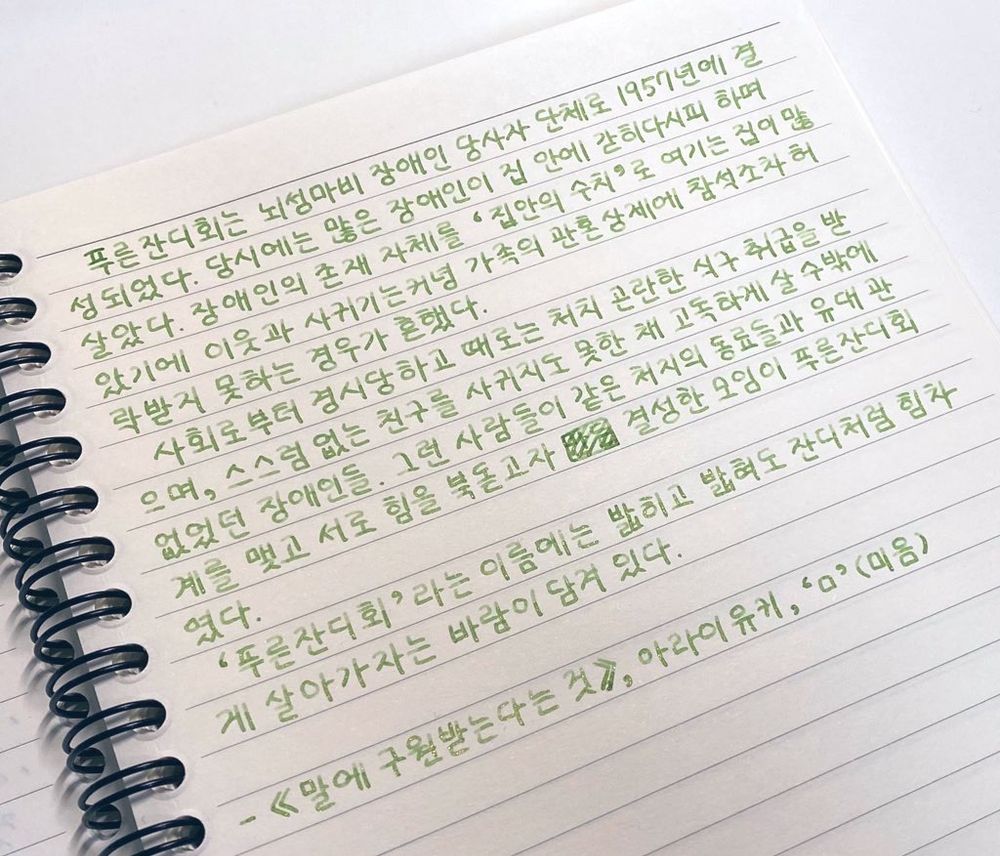 푸른잔디회는 뇌성마비 장애인 당사자 단체로 1957년에 결
성되었다. 당시에는 많은 장애인이 집 안에 갇히다시피 하며
살았다. 장애인의 존재 자체를 '집안의 수치'로 여기는 집이 많
았기에 이웃과 사귀기는커녕 가족의 관혼상제에 참석조차 허
락받지 못하는 경우가 흔했다.
사회로부터 경시당하고 때로는 처치 곤란한 식구 취급을 받
으며, 스스럼없는 친구를 사귀지도 못한 채 고독하게 살 수밖에
없었던 장애인들. 그런 사람들이 같은 처지의 동료들과 유대 관
계를 맺고 서로 힘을 북돋고자 결성한 모임이 푸른잔디회
였다.
'푸른잔디회'라는 이름에는 밟히고 밟혀도 잔디처럼 힘차
게 살아가자는 바람이 담겨 있다.
- 《말에 구원받는다는 것》, 아라이 유키, 'ㅁ'(미음)